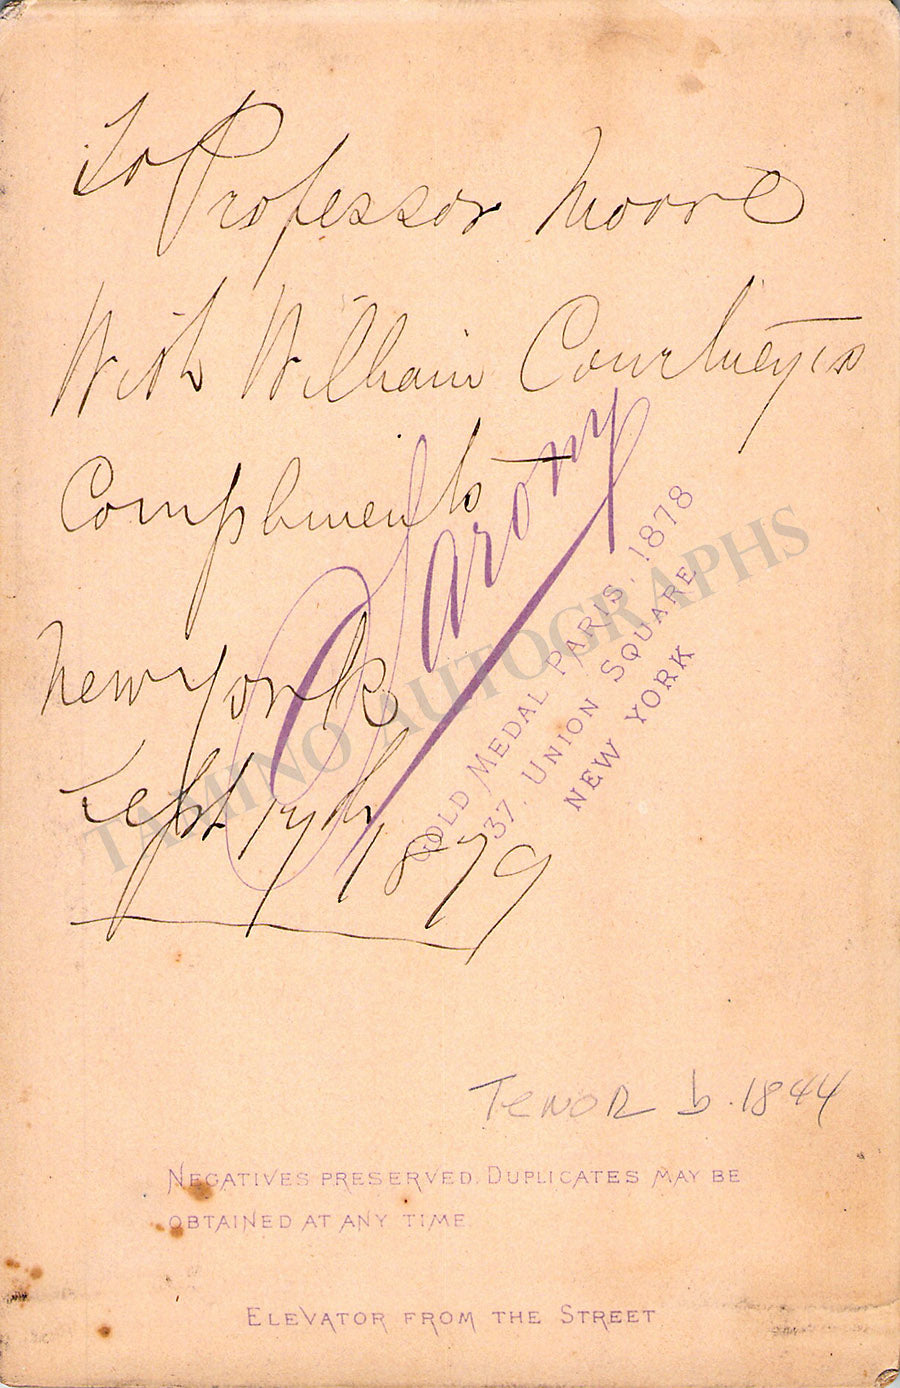 To Professor Moore
With William Courtney's
Compliments
New York
Sept 17th 1879
Sarony
GOLD MEDAL PARIS, 1878
37, UNION SQUARE
NEW YORK
TAMINO AUTOGRAPHS
TENOR b. 1844
NEGATIVES PRESERVED. DUPLICATES MAY BE
OBTAINED AT ANY TIME.
ELEVATOR FROM THE STREET